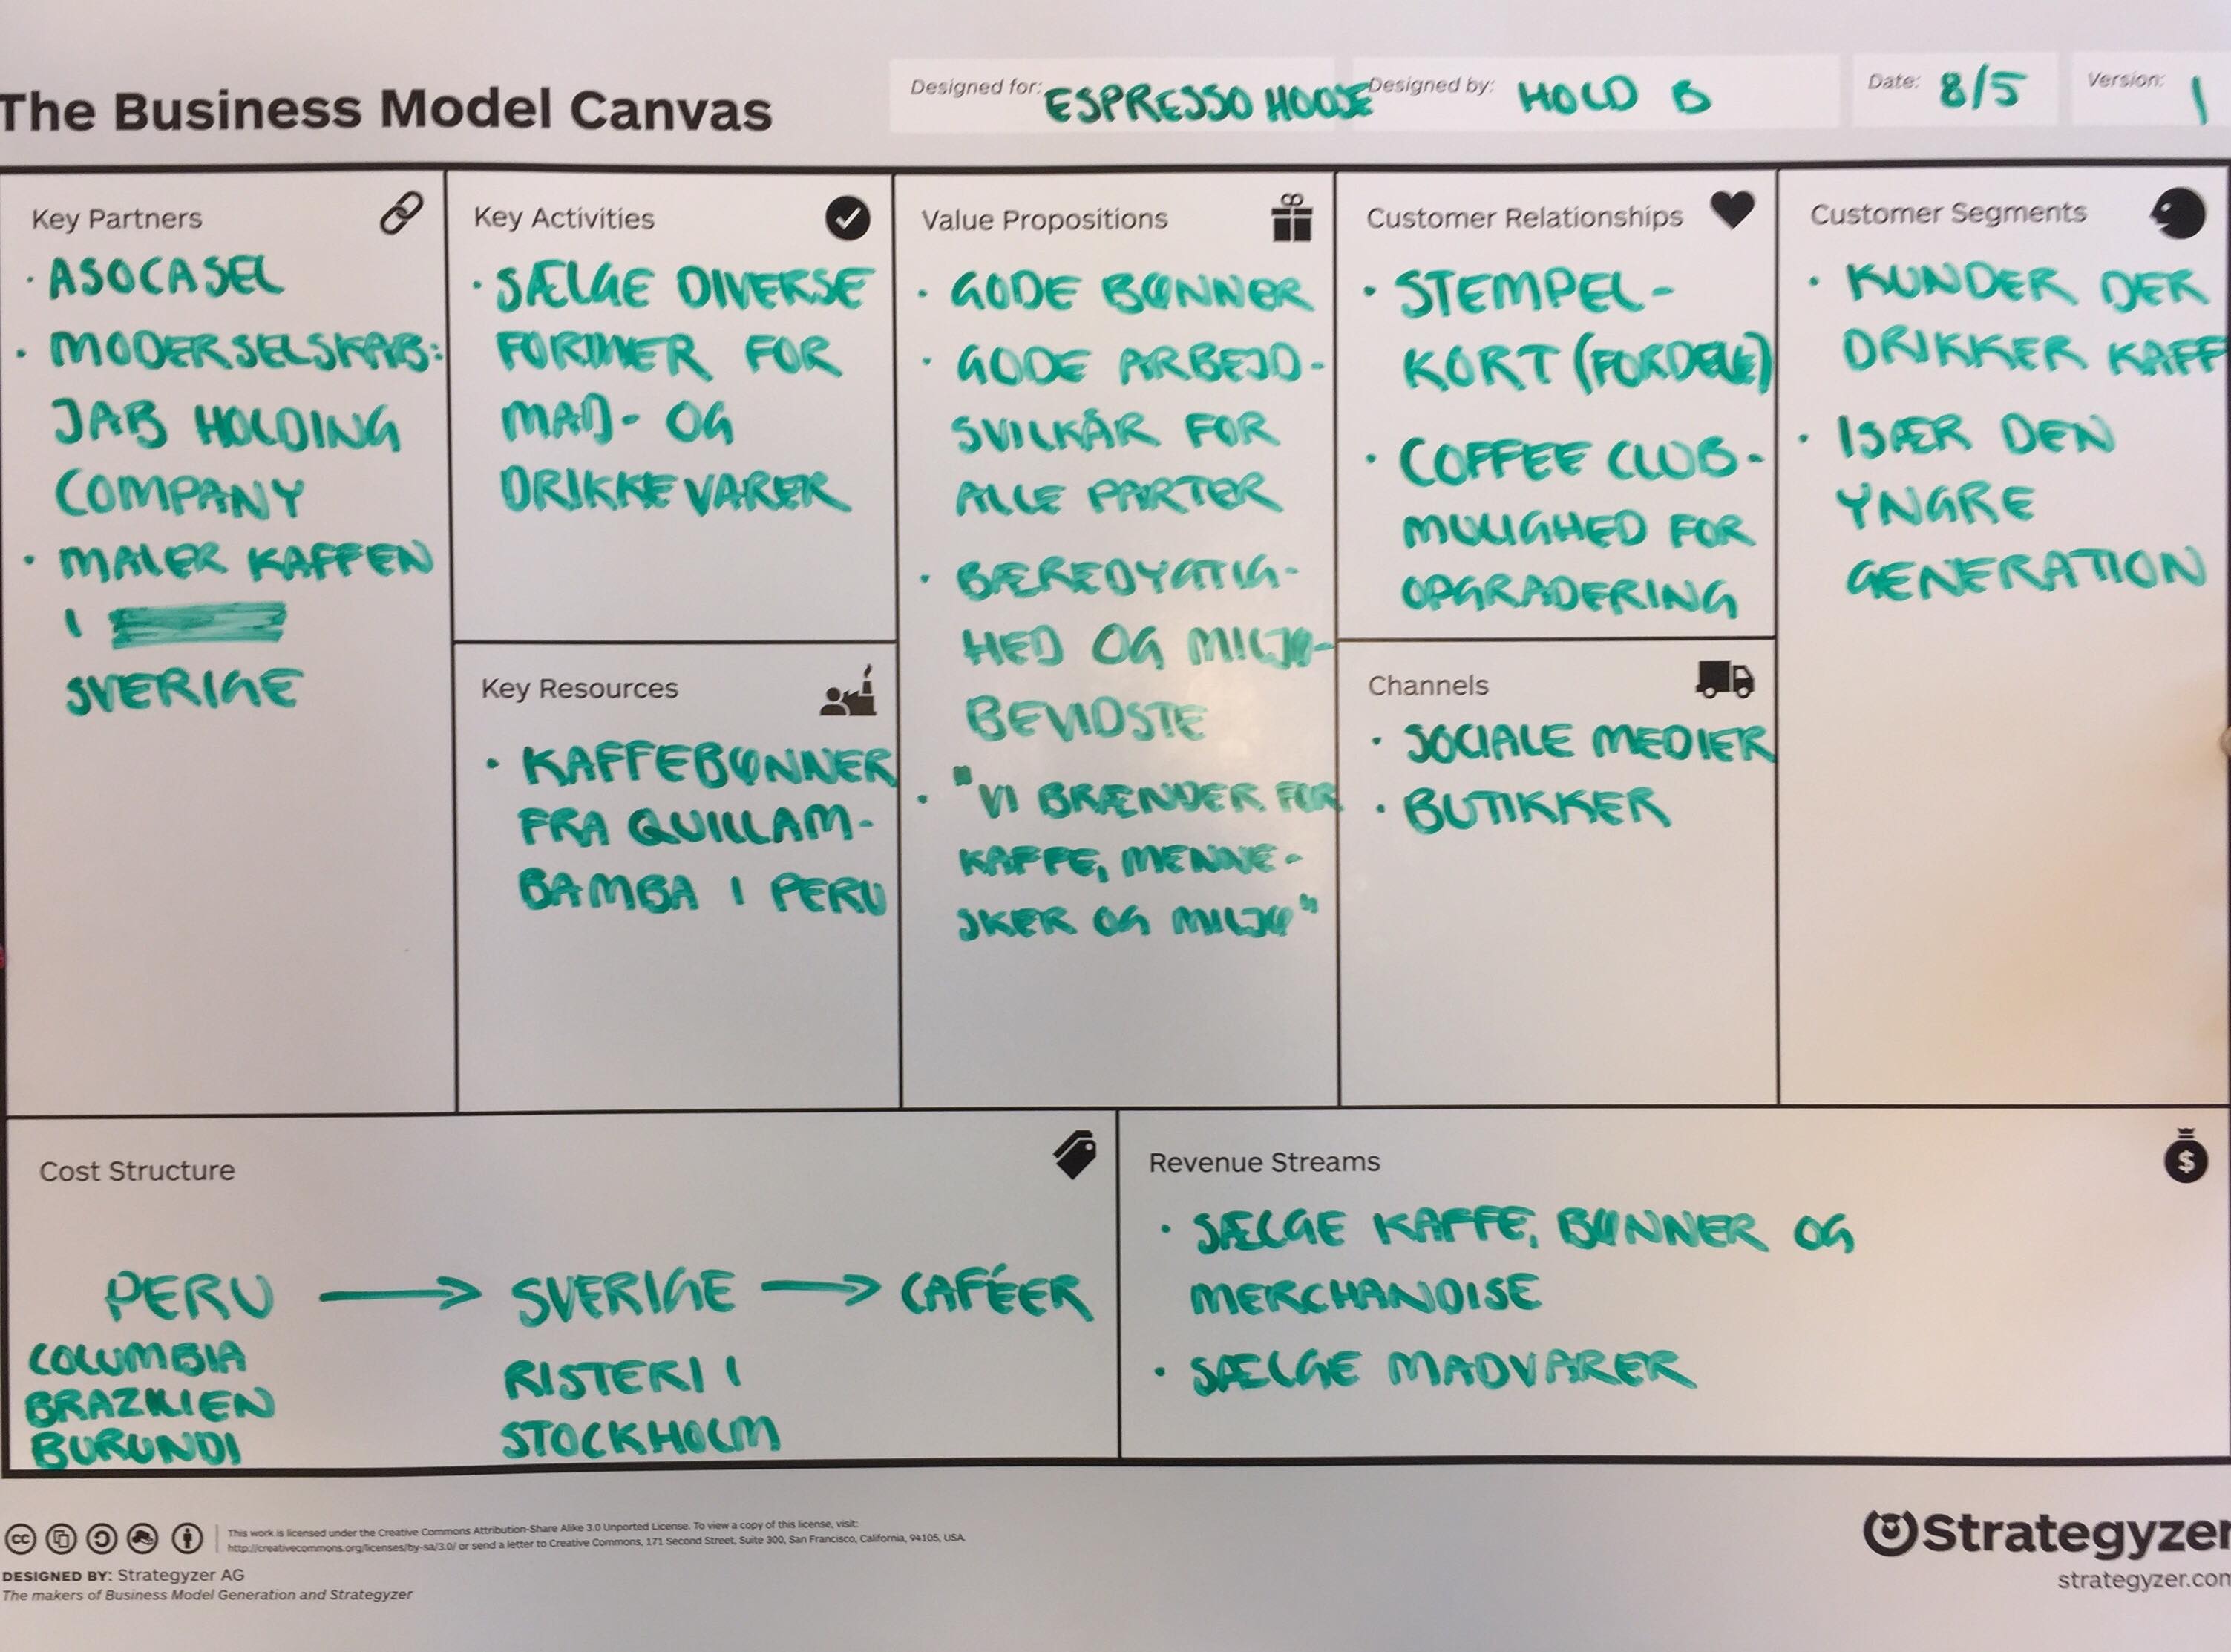 The Business Model Canvas
Designed for: ESPRESSO HOUSE
Designed by: HOLD B
Date: 8/5
Version: 1
Key Partners
· ASOCASEL
· MODERSELSKAB:
JAB HOLDING
COMPANY
· MALER KAFFEN
I
SVERIGE
Key Activities
· SÆLGE DIVERSE
FORMER FOR
MAD- OG
DRIKKEVARER
Key Resources
· KAFFEBØNNER
FRA QUILLAM-
BAMBA I PERU
Value Propositions
· GODE BØNNER
· GODE ARBEJD-
SVILKÅR FOR
ALLE PARTER
· BÆREDYGTIG-
HED OG MILJØ-
BEVIDSTE
· "VI BRÆNDER FOR
KAFFE, MENNE-
SKER OG MILJØ"
Customer Relationships
· STEMPEL-
KORT (FORDELE)
· COFFEE CLUB-
MULIGHED FOR
OPGRADERING
Channels
· SOCIALE MEDIER
· BUTIKKER
Customer Segments
· KUNDER DER
DRIKKER KAFF
· ISÆR DEN
YNGRE
GENERATION
Cost Structure
PERU → SVERIGE → CAFÉER
COLUMBIA
BRAZILIEN
BURUNDI
RISTERI I
STOCKHOLM
Revenue Streams
· SÆLGE KAFFE, BØNNER OG
MERCHANDISE
· SÆLGE MADVARER
This work is licensed under the Creative Commons Attribution-Share Alike 3.0 Unported License. To view a copy of this license, visit:
http://creativecommons.org/licenses/by-sa/3.0/ or send a letter to Creative Commons, 171 Second Street, Suite 300, San Francisco, California, 94105, USA.
DESIGNED BY: Strategyzer AG
The makers of Business Model Generation and Strategyzer
Strategyzer
strategyzer.com